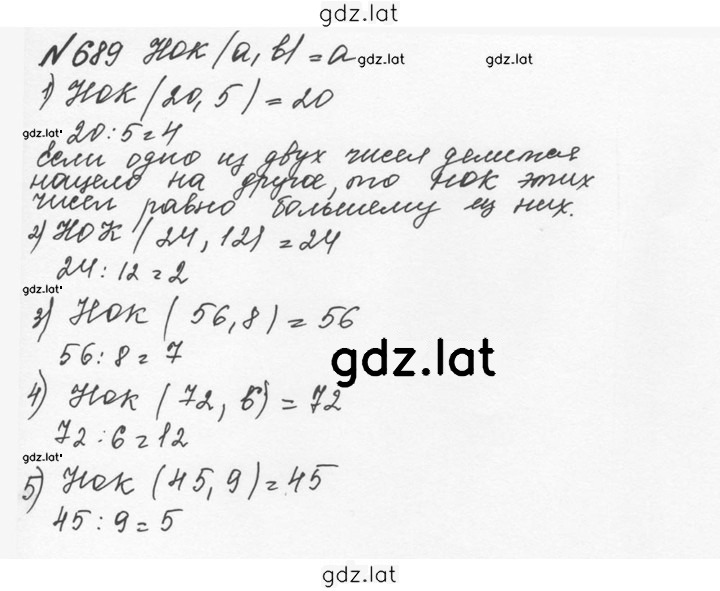 gdz.lat
№689 НОК (a, b) = a gdz.lat gdz.lat
1) НОК (20, 5) = 20
gdz.lat 20 : 5 = 4
Если одно из двух чисел делится
нацело на другое, то НОК этих
чисел равно большему из них.
2) НОК (24, 12) = 24
24 : 12 = 2
gdz.lat
3) НОК (56, 8) = 56
56 : 8 = 7
gdz.lat
4) НОК (72, 6) = 72
72 : 6 = 12
gdz.lat
5) НОК (45, 9) = 45
45 : 9 = 5
gdz.lat